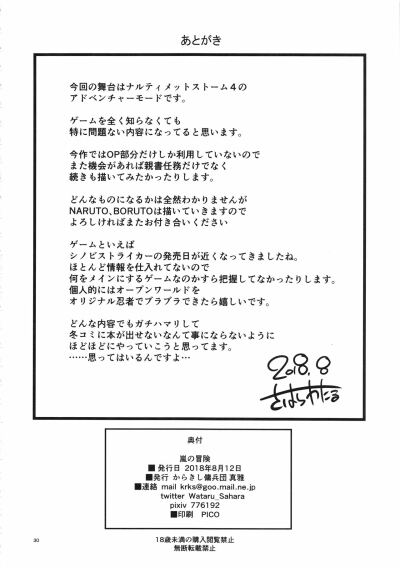 あとがき
今回の舞台はナルティメットストーム4の
アドベンチャーモードです。
ゲームを全く知らなくても
特に問題ない内容になってると思います。
今作ではOP部分だけしか利用していないので
また機会があれば親書任務だけでなく
続きも描いてみたかったりします。
どんなものになるかは全然わかりませんが
NARUTO、BORUTOは描いていきますので
よろしければまたお付き合いください
ゲームといえば
シノビストライカーの発売日が近くなってきましたね。
ほとんど情報を仕入れてないので
何をメインにするゲームなのかすら把握してなかったりします。
個人的にはオープンワールドを
オリジナル忍者でブラブラできたら嬉しいです。
どんな内容でもガチハマりして
冬コミに本が出せないなんて事にならないように
ほどほどにやっていこうと思ってます。
……思ってはいるんですよ…
2018.8
さはらわたる
奥付
嵐の冒険
■発行日 2018年8月12日
■発行 からきし傭兵団 真雅
■連絡 mail krks@goo.mail.ne.jp
twitter Wataru_Sahara
pixiv 776192
■印刷 PICO
30
18歳未満の購入閲覧禁止
無断転載禁止